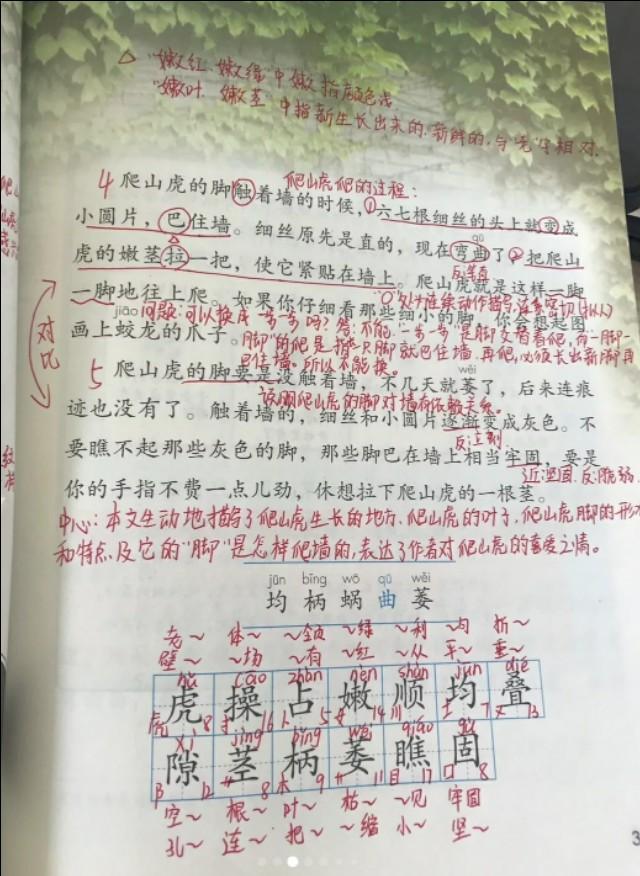 △ "嫩红、嫩绿"中嫩指颜色浅.
"嫩叶、嫩茎"中指新生长出来的.新鲜的.与"老"字相对.
爬山虎爬的过程:
4 爬山虎的脚触着墙的时候,①六七根细丝的头上就变成
小圆片,巴住墙。细丝原先是直的,现在弯曲了,②把爬山
qū
虎的嫩茎拉一把,使它紧贴在墙上。爬山虎就是这样一脚
反笔直
一脚地往上爬。如果你仔细看那些细小的脚,你会想起图
jiāo
问题:可以换成"一步一步"吗?答:不能."一步一步"是脚交替着爬,而"一脚一
画上蛟龙的爪子。
脚"的爬是指一只脚就巴住墙.再爬,必须长出新脚再
巴住墙。所以不能换。
对比
5 爬山虎的脚要是没触着墙,不几天就萎了,后来连痕
wěi
说明爬山虎的脚对墙有依赖关系。
迹也没有了。触着墙的,细丝和小圆片逐渐变成灰色。不
反立刻
要瞧不起那些灰色的脚,那些脚巴在墙上相当牢固,要是
近坚固.反:脆弱.
你的手指不费一点儿劲,休想拉下爬山虎的一根茎。
中心:本文生动地描写了爬山虎生长的地方、爬山虎的叶子、爬山虎脚的形状
和特点及它的"脚"是怎样爬墙的,表达了作者对爬山虎的喜爱之情。
jūn bǐng wō qū wěi
均 柄 蜗 曲 萎
老~ 体~ ~领 ~绿 ~利 ~匀 折~
壁~ ~场 ~有 ~红 ~从 平~ 重~
hǔ cāo zhàn nèn shùn jūn dié
虎 操 占 嫩 顺 均 叠
虎 8 扌 16 卜 5 女 14 川 土 7 又 13
xì jīng bǐng wěi qiáo gù
隙 茎 柄 萎 瞧 固
阝 12 艹 8 木 9 艹 11 目 17 口 8
空~ 根~ 叶~ 枯~ ~见 牢固
孔~ 连~ 把~ ~缩 小~ 坚~
3